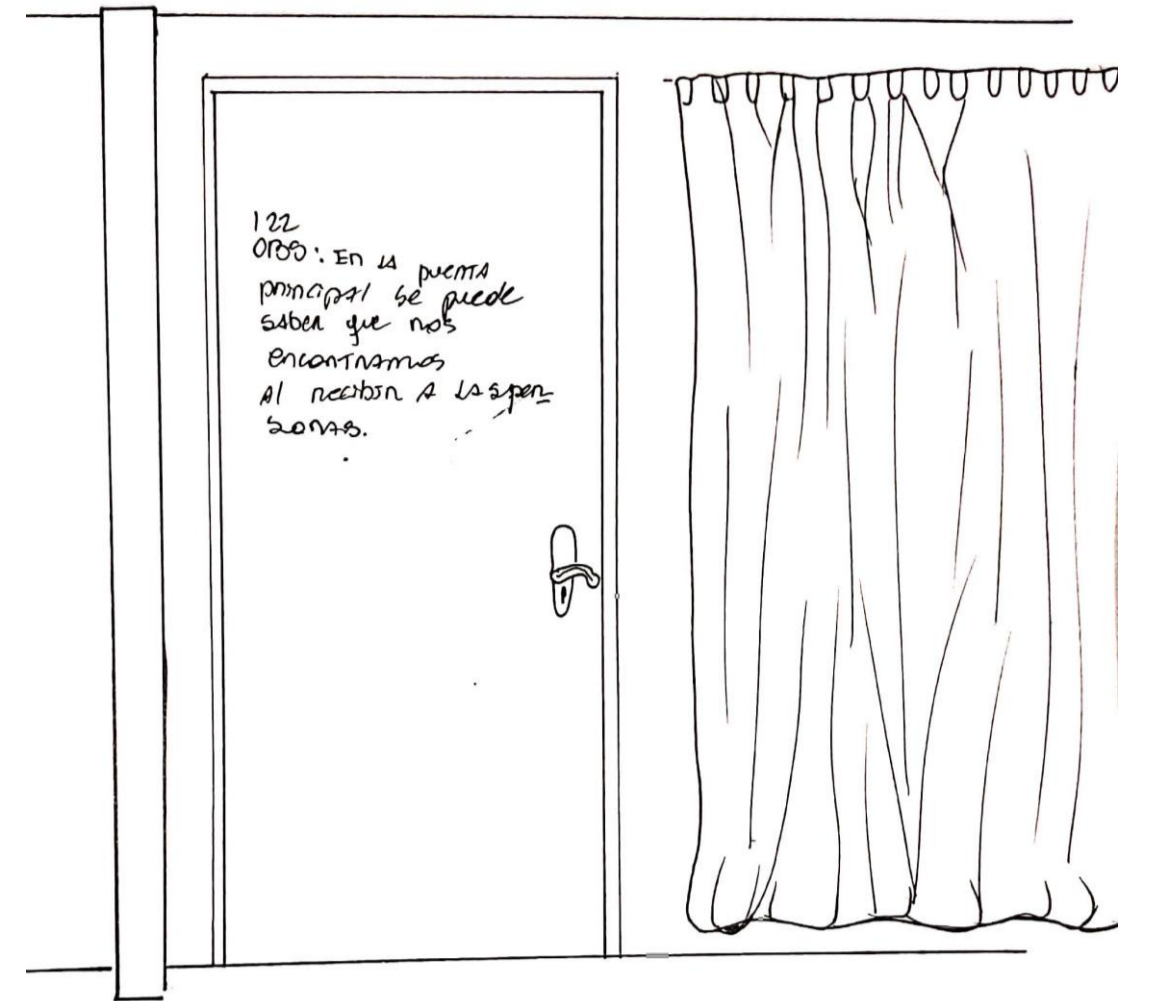 122
OBS: En la puerta
principal se puede
saber que nos
encontramos
Al recibir A la sper-
sonas.